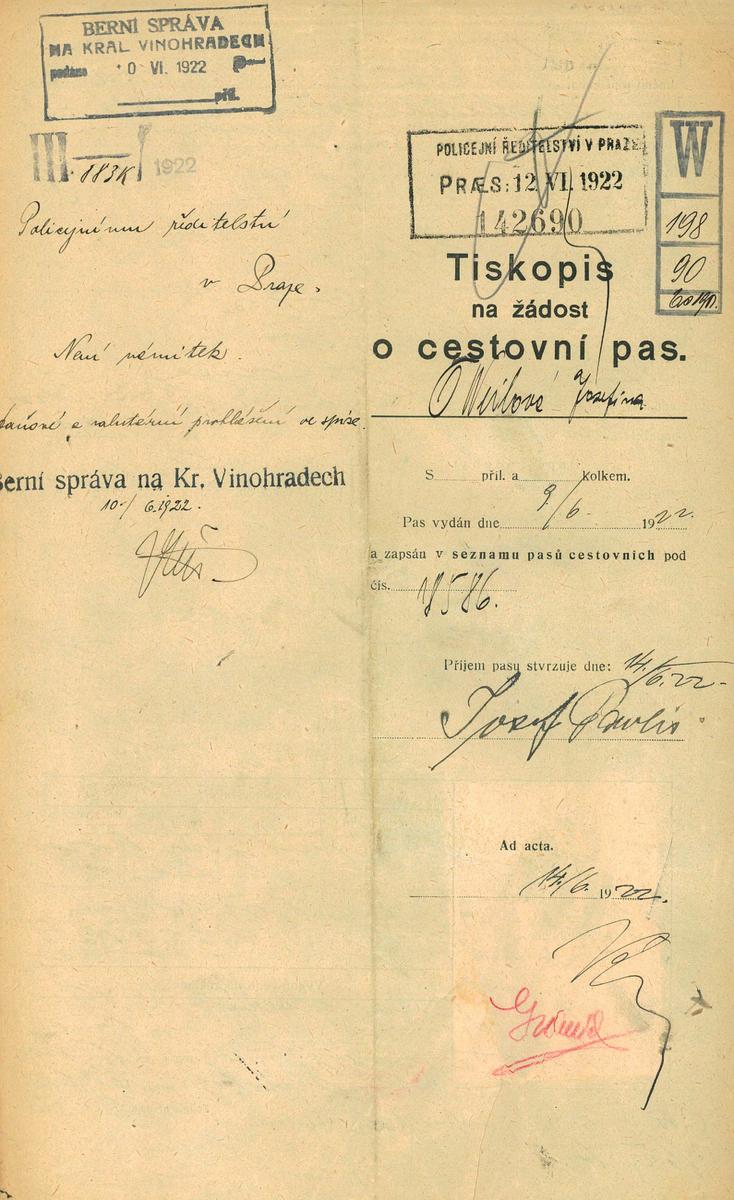 BERNÍ SPRÁVA
NA KRÁL VINOHRADECH
podáno 0 VI. 1922
příl.
III 883K 1922
Policejnímu ředitelství
v Praze.
Není námitek.
daňové a valutární prohlášení ve spise.
Berní správa na Kr. Vinohradech
10/6.1922.
POLICEJNÍ ŘEDITELSTVÍ V PRAZE
PRÆS: 12 VI. 1922
142690
W
198
90
Tiskopis
na žádost
o cestovní pas.
Weilová Josefina
S příl. a kolkem.
Pas vydán dne 9/6. 1922.
a zapsán v seznamu pasů cestovních pod
čís.
Příjem pasu stvrzuje dne: 14./6.22
Josef Pavlis
Ad acta.
14./6. 1922.